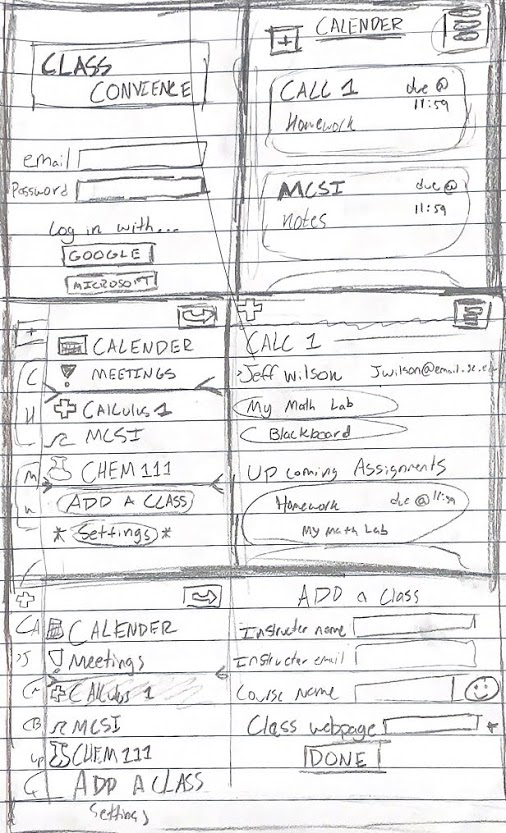 CLASS
CONVIENCE
email
Password
Log in with...
GOOGLE
MICROSOFT
CALENDER
CALC 1 due @
11:59
Homework
MCSI due @
notes 11:59
CALENDER
MEETINGS
CAlculus 1
MCSI
CHEM 111
ADD A CLASS
* Settings *
CALC 1
Jeff Wilson Jwilson@email.sc.edu
My Math Lab
Blackboard
Up coming Assignments
Homework due @ 11:59
My Math Lab
CALENDER
Meetings
CAlculus 1
MCSI
CHEM 111
ADD A CLASS
Settings
ADD a Class
Instructer name
Instructer email
Course Name
Class webpage
DONE